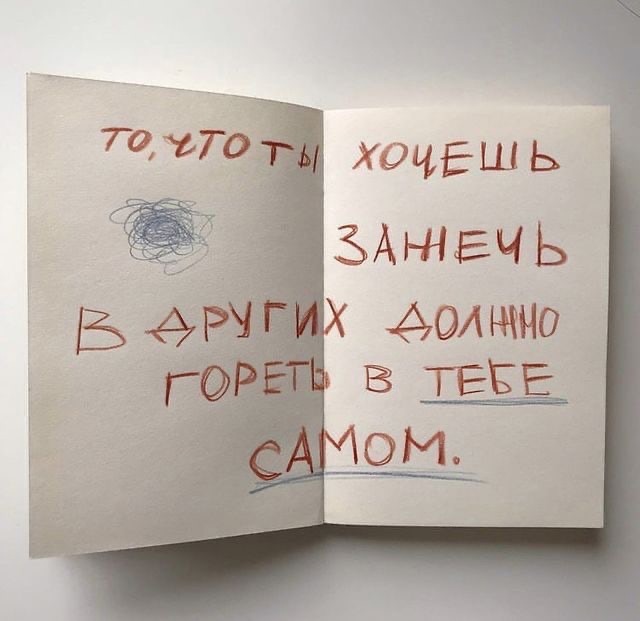 ТО, ЧТО ТЫ ХОЧЕШЬ
ЗАЖЕЧЬ
В ДРУГИХ ДОЛЖНО
ГОРЕТЬ В ТЕБЕ
САМОМ.